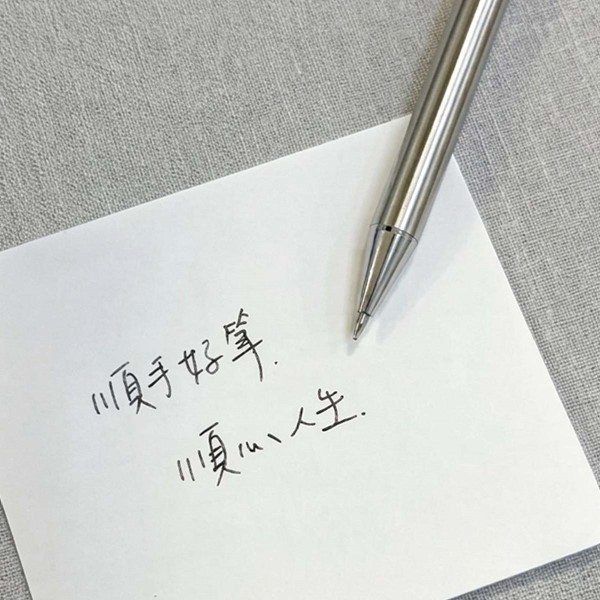 順手好筆.
順心人生.